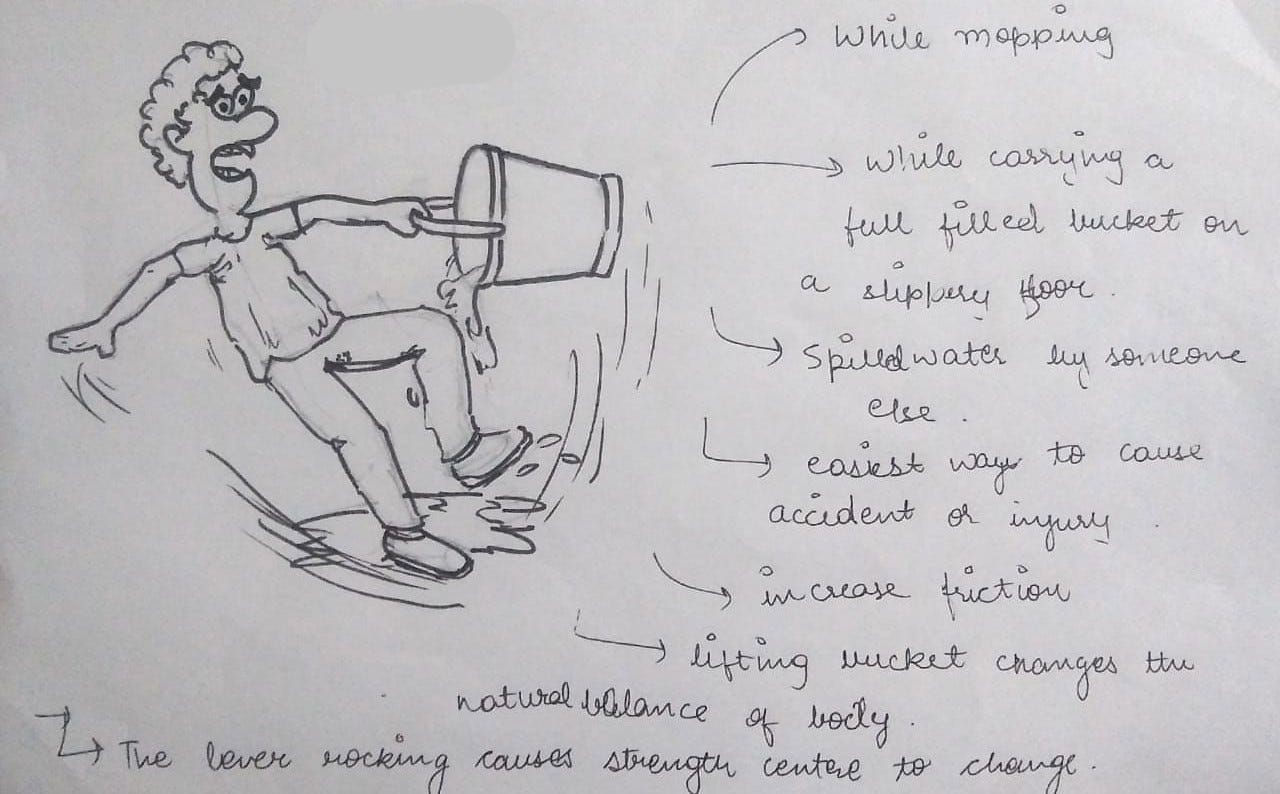 While mopping
while carrying a
full filled bucket on
a slippery floor.
Spilled water by someone
else.
easiest way to cause
accident or injury.
increase friction
lifting bucket changes the
natural balance of body.
The lever rocking causes strength centre to change.